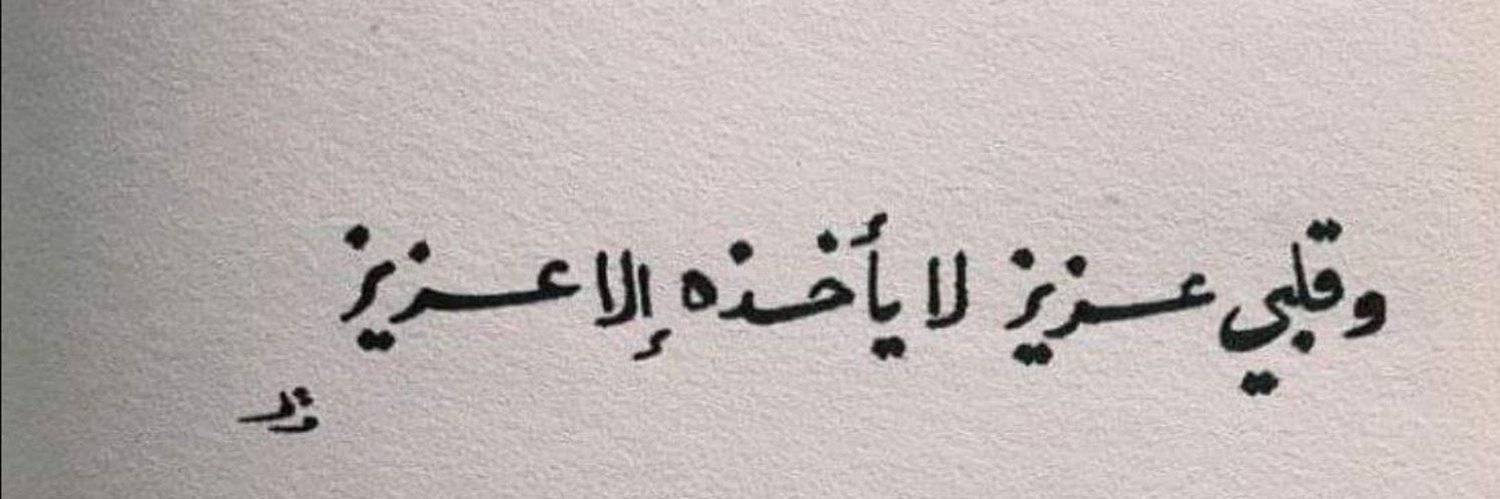 وقلبي عزيز لا يأخذه إلا عزيز